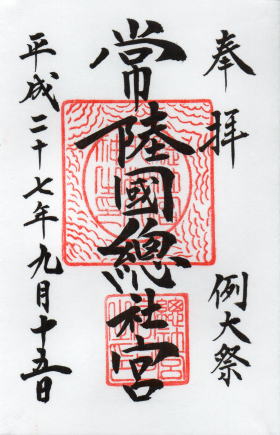 奉拝
例大祭
常陸國總社宮
平成二十七年九月十五日